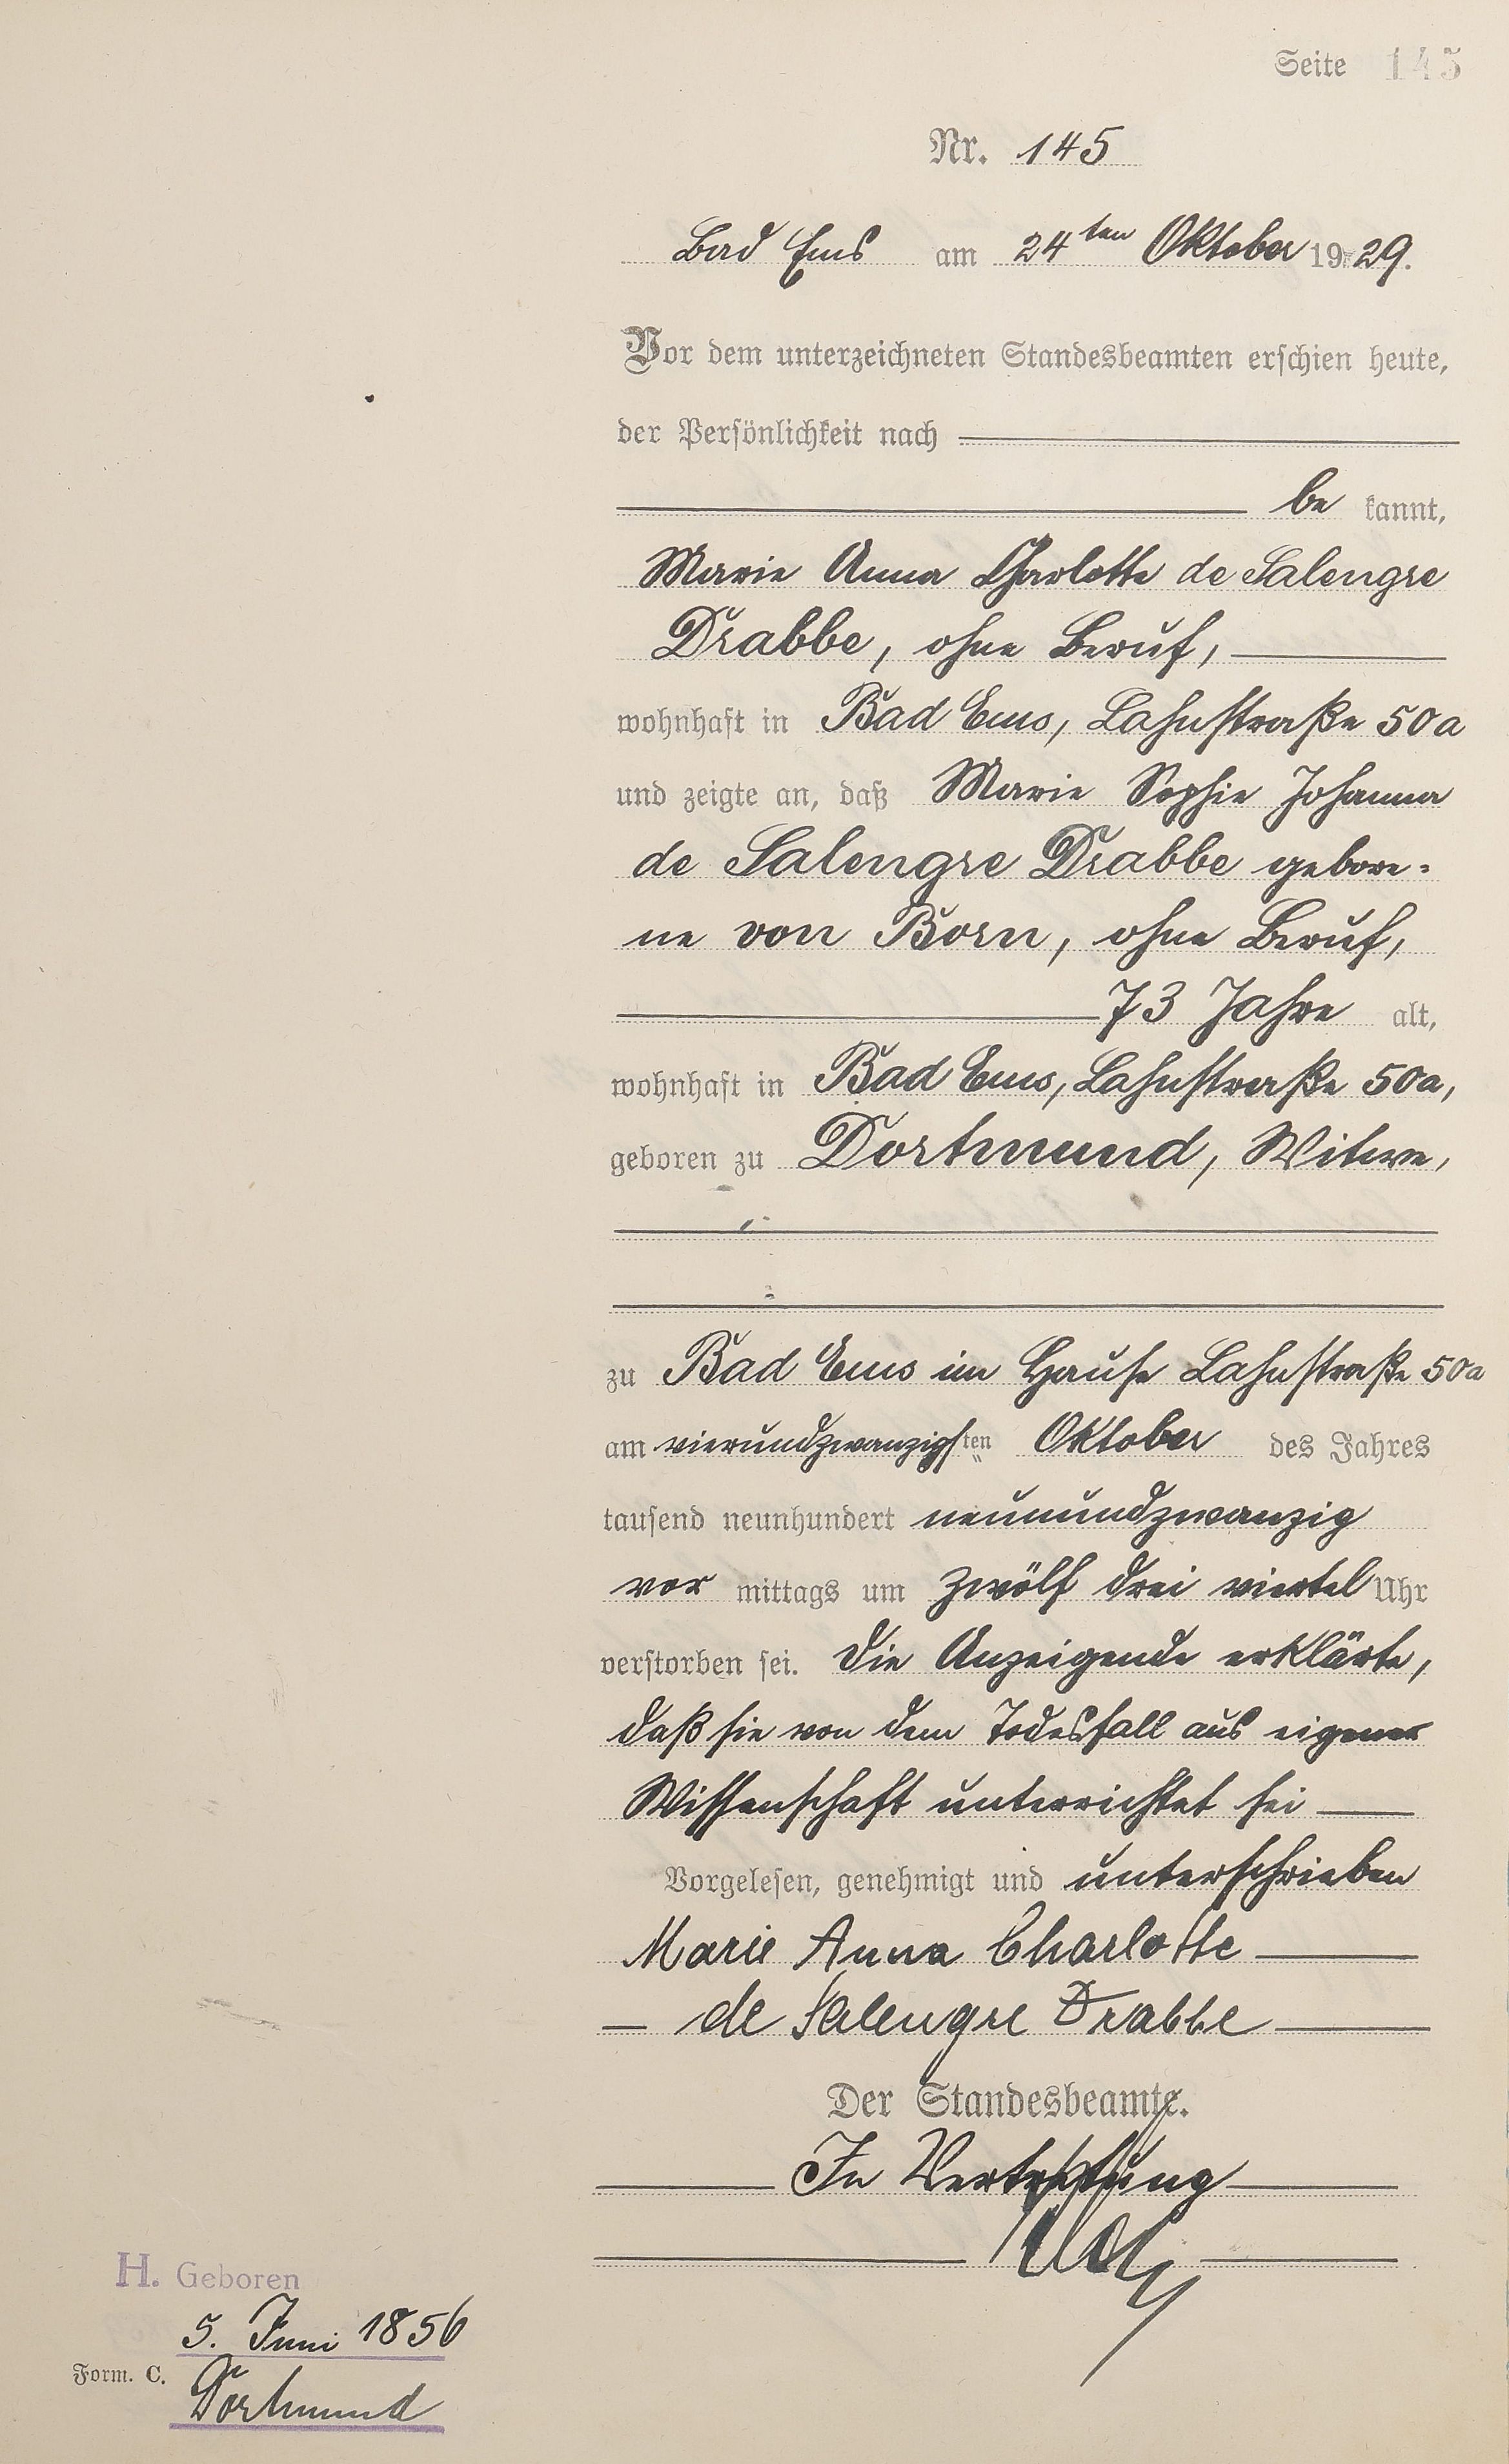 Seite 145
Nr. 145
Bad Ems am 24ten Oktober 1929.
Vor dem unterzeichneten Standesbeamten erschien heute,
der Persönlichkeit nach
be kannt,
Marie Anna Charlotte de Salengre
Drabbe, ohne Beruf,
wohnhaft in Bad Ems, Lahnstraße 50a
und zeigte an, daß Marie Sophie Johanna
de Salengre Drabbe gebore-
ne von Born, ohne Beruf,
73 Jahre alt,
wohnhaft in Bad Ems, Lahnstraße 50a,
geboren zu Dortmund, Witwe,
zu Bad Ems im Hause Lahnstraße 50a
am vierundzwanzigsten Oktober des Jahres
tausend neunhundert neunundzwanzig
vor mittags um zwölf drei viertel Uhr
verstorben sei. Die Anzeigende erklärte,
daß sie von dem Todesfall aus eigener
Wissenschaft unterrichtet sei
Vorgelesen, genehmigt und unterschrieben
Marie Anna Charlotte
de Salengre Drabbe
Der Standesbeamte.
In Vertretung
H. Geboren
5. Juni 1856
Form. C.
Dortmund